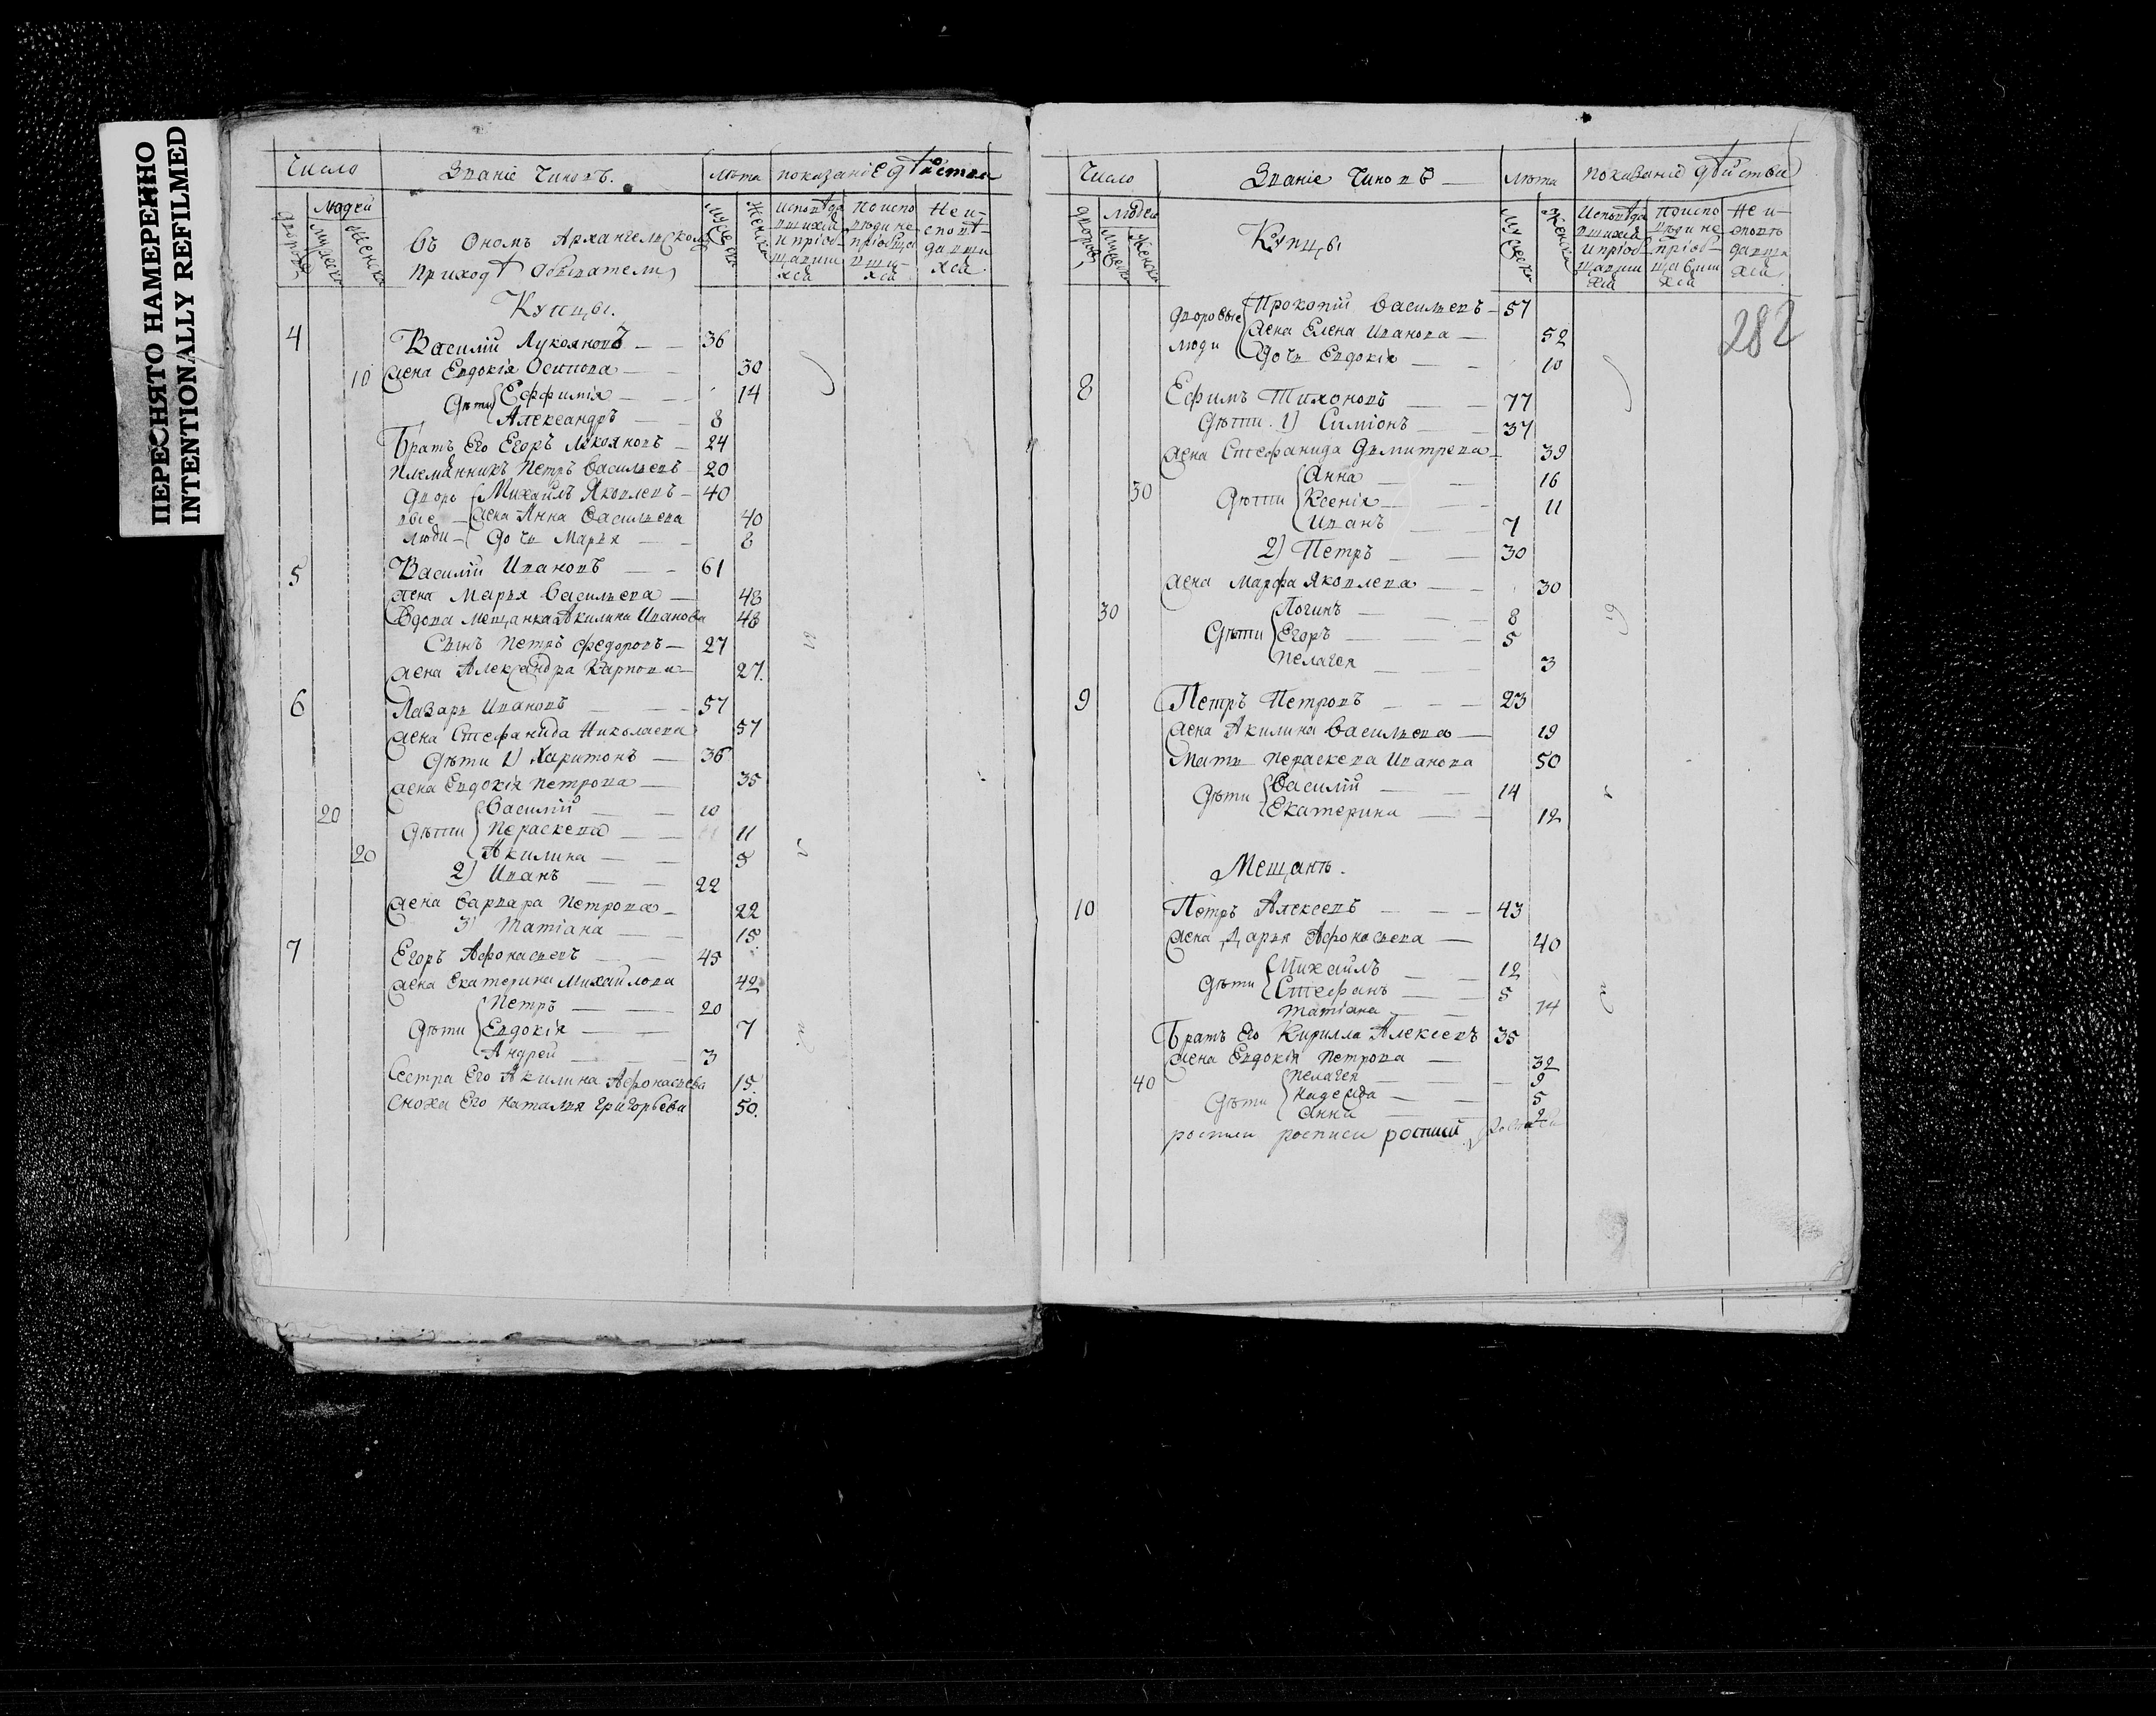 ПЕРЕСНЯТО НАМЕРЕННО
INTENTIONALLY REFILMED
Число Званіе Чиновъ. лѣта показаніе дѣйства
дворовъ людей мужеска женска
Въ Ономъ Архангельскомъ
приходѣ Обыватели
мужеска женска
Исповѣдавшихся и пріобщавшихся
По исповѣди не пріобщавшихся
Не исповѣдавшихся
Купцы.
4 Василій Лукояновъ — 36
10 жена Евдокія Осипова — 30
дѣти Еффимія — 14
Александръ — 8
Братъ Его Егоръ Лукояновъ — 24
Племянникъ Петръ Васильевъ — 20
дворовые люди Михайлъ Яковлевъ — 40
жена Анна Васильева 40
дочь Марья — 8
5 Василій Ивановъ — 61
жена Марья Васильева — 48
Вдова мещанка Акилина Иванова 48
Сынъ Петръ Федоровъ — 27
жена Александра Карпова — 27.
6 Лазарь Ивановъ — 57
жена Стефанида Николаева 57
дѣти 1) Харитонъ — 36
жена Евдокія Петрова — 35
20 дѣти Василій — 10
Параскева — 11
20 Акилина — 5
2) Иванъ — 22
жена Варвара Петрова — 22
3) Татіана — 15.
7 Егоръ Афонасьевъ — 45
жена Екатерина Михайлова 42
дѣти Петръ — 20
Евдокія — 7
Андрей — 3
Сестра Его Акилина Афонасьева 15
Сноха Его Наталья Григорьева 50.
Число Званіе Чиновъ — лѣта показаніе дѣйства
дворовъ людей мужеска женска
Купцы
мужеска женска
Исповѣдавшихся и пріобщавшихся
По исповѣди не пріобщавшихся
Не исповѣдавшихся
282
дворовые люди Прокопій Васильевъ — 57
жена Елена Иванова — 52
дочь Евдокія — 10
8 Ефимъ Тихоновъ — 77
дѣти. 1) Симіонъ — 37
жена Стефанида Дмитрева — 39
30 дѣти Анна — 16
Ксенія — 11
Иванъ — 7
2) Петръ — 30
жена Марфа Яковлева — 30
30 дѣти Логинъ — 8
Егоръ — 5
Пелагея — 3
9 Петръ Петровъ — 23
жена Акилина Васильева — 19
Мать Пераскева Иванова 50
дѣти Василій — 14
Екатерина — 12
Мещанѣ.
10 Петръ Алексеевъ — 43
жена Дарья Афонасьева — 40
дѣти Михайлъ — 12
Стефанъ — 5
Татіана — 14
Братъ Его Кирилла Алексеевъ 35
жена Евдокія Петрова — 32
40 дѣти Пелагея — 9
Надежда — 5
Анна — 2
росписи росписи